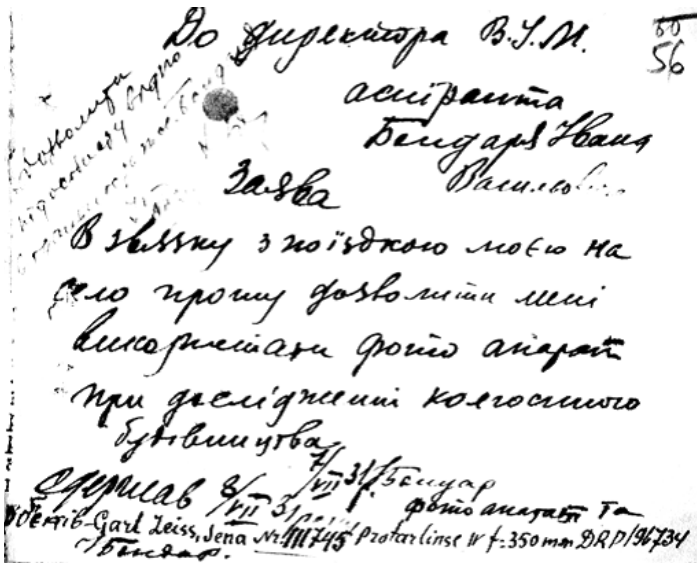 До директора В.У.М.
50
56
аспіранта
Бондаря Івана
Васильови
Заява
Дозволити
В звязку з поїздкою моєю на
село прошу дозволити мені
використати фото апарат
при дослідженні колгоспного
будівництва
7/VII 31 р. Бондар
Одержав 8/VII 31 р. фото апарат та
Carl Zeiss, Jena Nr. 111745 Protarlinse IV f=350 mm DRP 196734
Бондар.